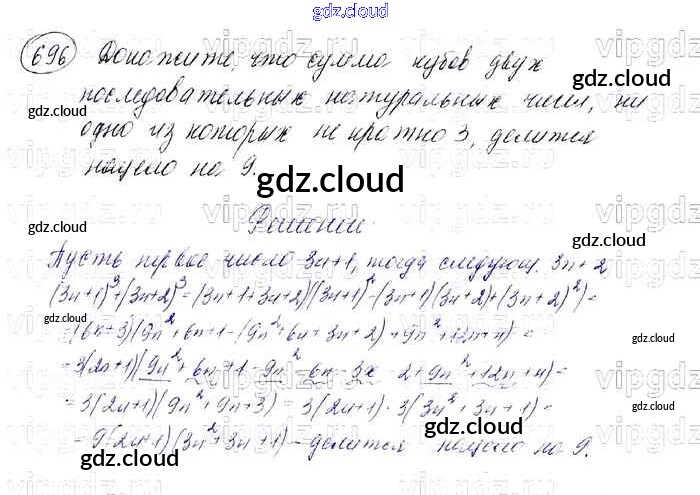 gdz.cloud
696 Докажите, что сумма кубов двух
последовательных натуральных чисел, ни
одно из которых не кратно 3, делится
нацело на 9.
gdz.cloud
Решение.
Пусть первое число 3n+1, тогда следующ. 3n+2
(3n+1)³+(3n+2)³=(3n+1+3n+2)((3n+1)²-(3n+1)(3n+2)+(3n+2)²)=
=(6n+3)(9n²+6n+1-(9n²+6n+3n+2)+9n²+12n+4)=
=3(2n+1)(9n²+6n+1-9n²-6n-3n-2+9n²+12n+4)=
=3(2n+1)(9n²+9n+3)=3(2n+1)·3(3n²+3n+1)=
=9(2n+1)(3n²+3n+1)-делится нацело на 9.
gdz.cloud